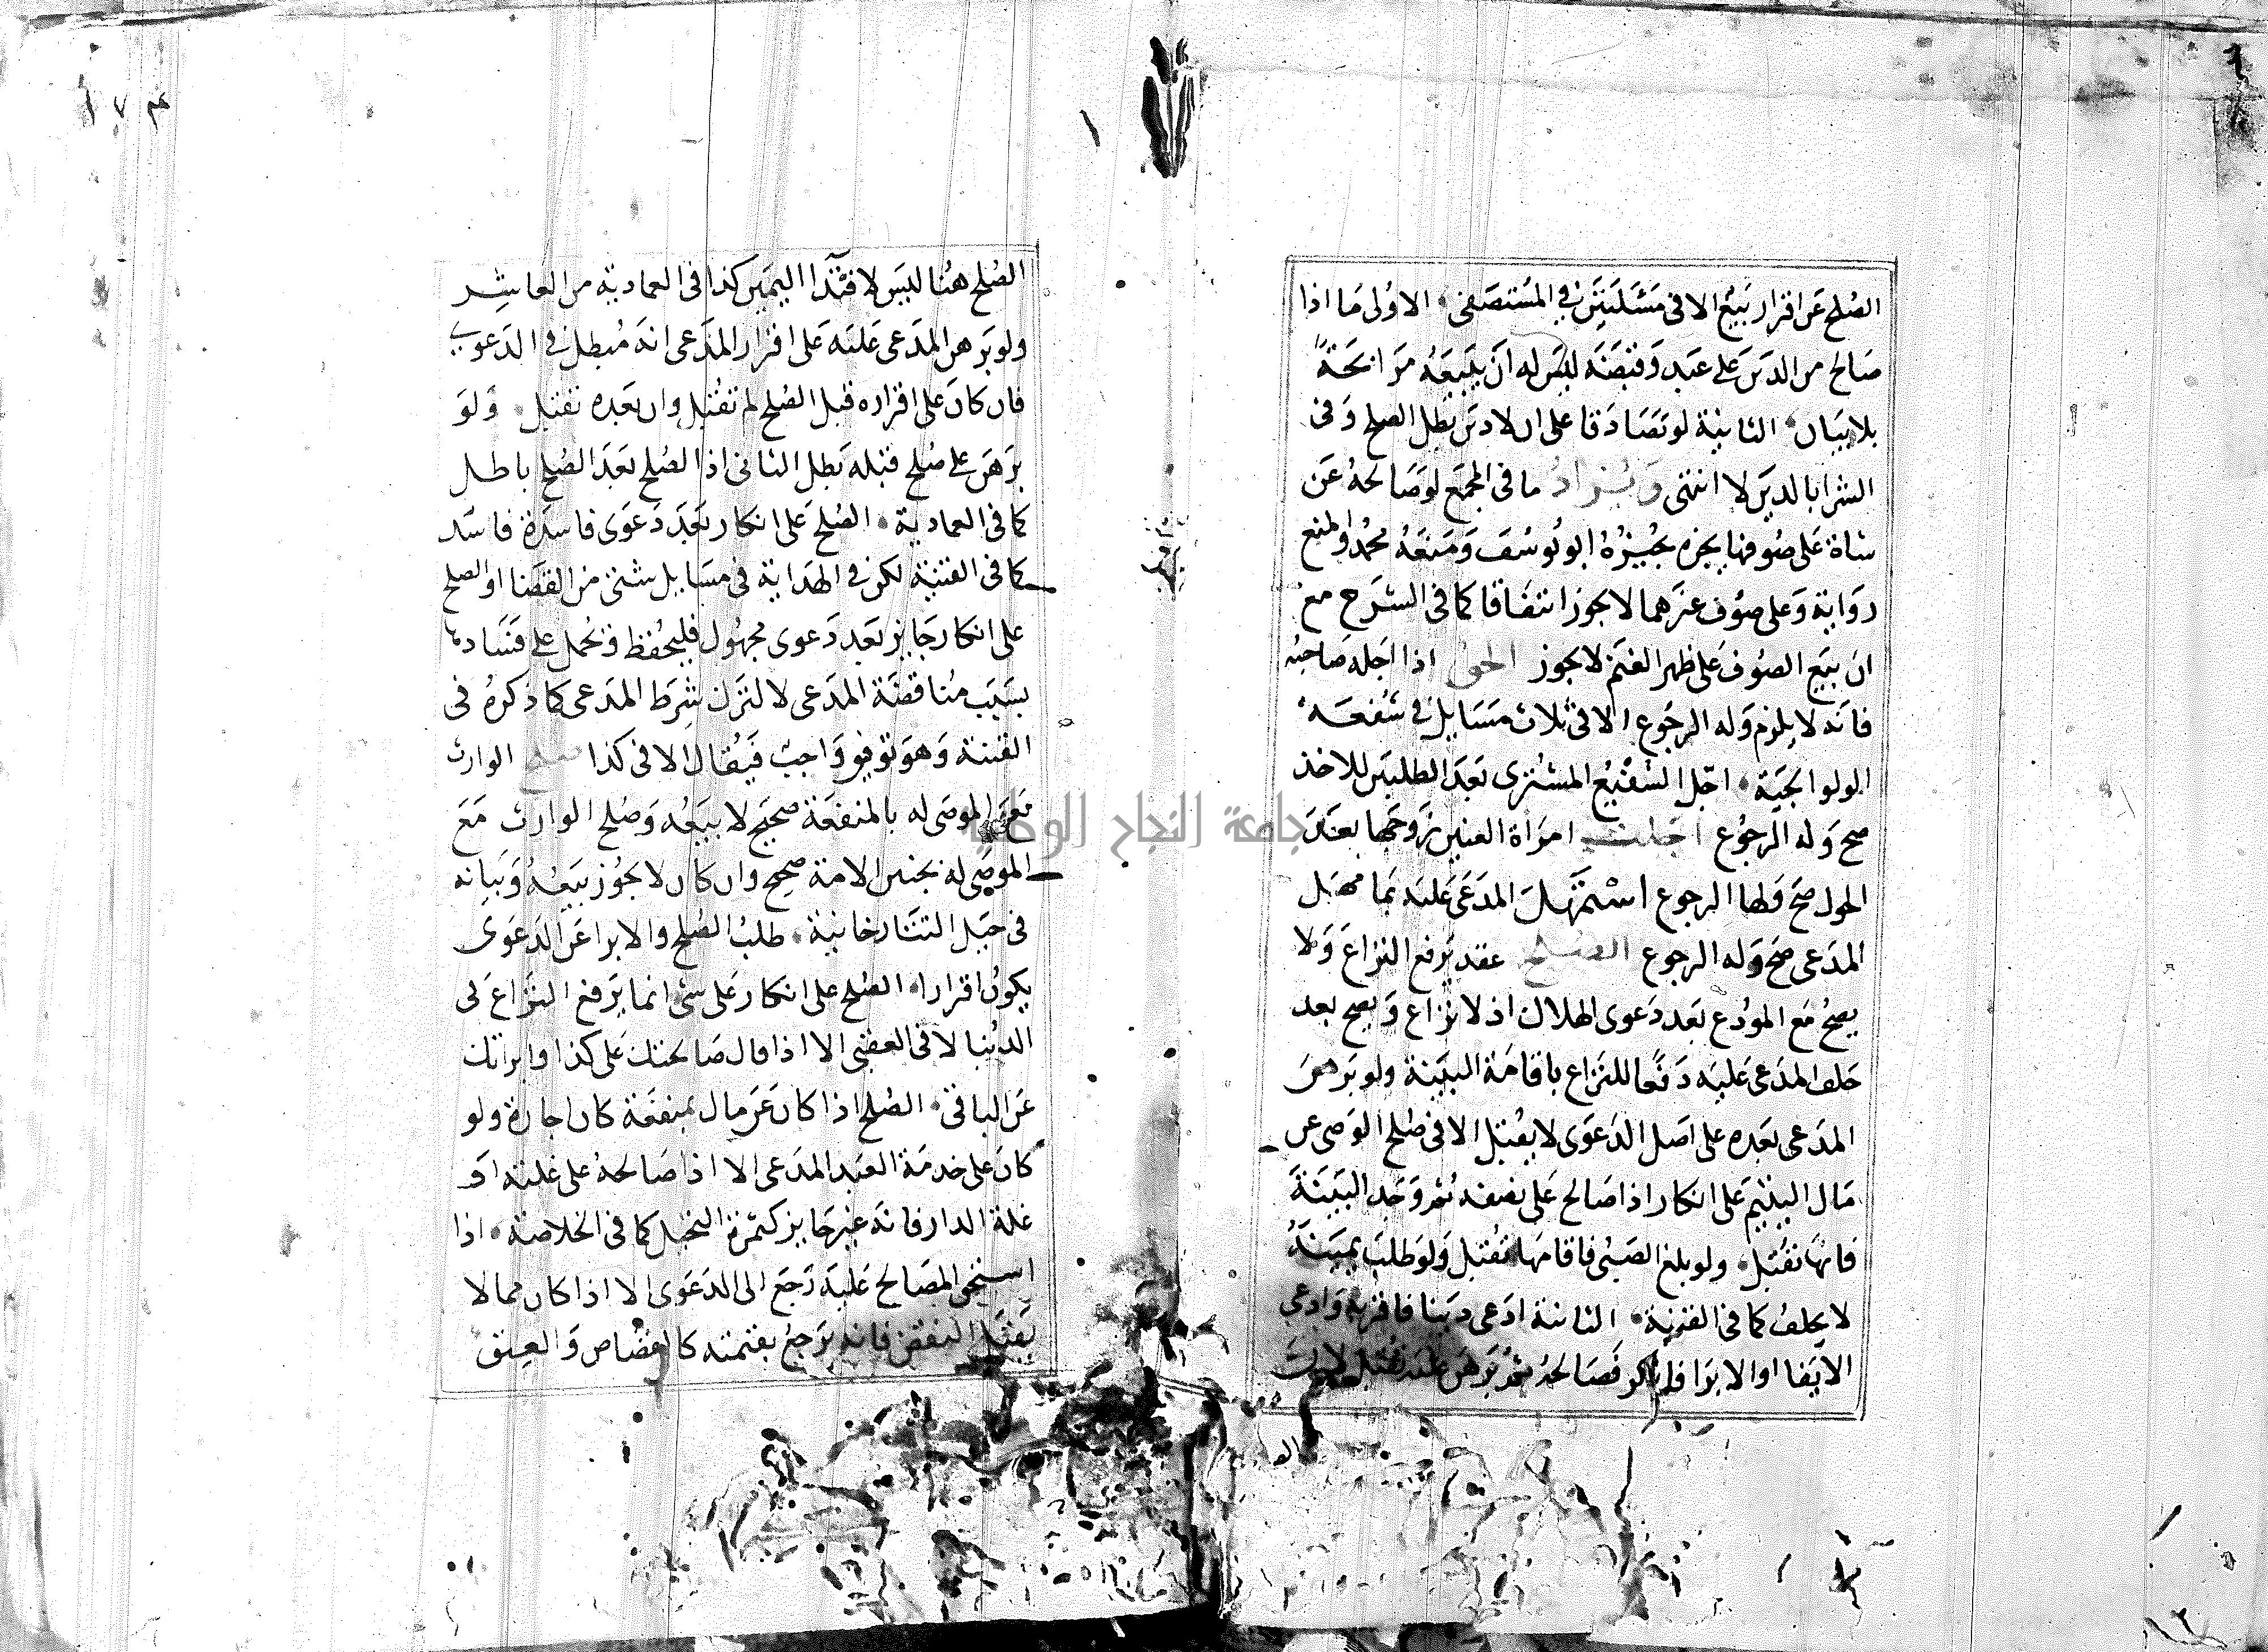 الصُلح عَن اقرار بَيْع الا فى مَسْئلَتَيْن فى المُستصفى الاوُلى مَا اذا
صَالح من الدَين عَلى عَبد وَقبضَه ليسَ له اَن يَبيعَهُ مَرابحَة
بلا بيَان الثانية لو تصَادَقا على ان لادين بَطل الصلح وَفى
الشرا بالدين لا انتهى وَيُزادُ ما فى المجمَع لوصَالحهُ عَن
شاة عَلى صُوفها يجزه يُجيزُهُ ابو يُوسُف وَمَنعَهُ محُمد والمنع
رِوَاية وَعلى صوُف غيرهما لا يجوز اتفاقا كما فى الشرَح مع
ان بيَع الصوُف عَلى ظهر الغنَم لا يجوز الحق اذا اجله صَاحبُه
فانه لا يلزم وَله الرجُوع الا فى ثلاث مسَايل فى شُفعَة
الولوالجيَة اجّل الشفيْع المشترى بَعدَ الطلبين للاخذ
صح وَله الرجُوع اجلت امرَاة العنين زَوجَها بعدَ
الحول صَح وَلها الرجوع استمهَل المدَعَى عَليه فامهَل
المدَعى صَح وَله الرجوع الصلح عقد يَرفع النزاعَ وَلا
يصحُ مَع المودَع بَعدَ دَعوى الهلاك اذ لا نِزاع وَيصح بعد
حَلف المدَعى عَليه دَفعًا للنزاع باقامَة البيّنة ولو برهنَ
المدَعى بَعده على اصَل الدَعوَى لا يقُبَل الا فى صُلح الوَصى عن
مَال اليتيم عَلى انكار اذا صَالح عَلى بعضه ثم وَجد البيّنَة
فانها تقُبَل ولو بلغ الصَبى فاقامَها تُقبَل وَلو طلبَ يمينَهُ
لا يحلف كما فى القنية الثانية ادَعى دينا فاقر به وَادعى
الايَفا او الابرَا فانكر فصَالحهُ ثمُ برَهن عَليه تقبل لان
الصُلح هُنا ليسَ لافتدا اليمَين كذا فى العمادية من العاشِر
ولو بَرهن المدَعى عَليه عَلى اقرار المدَعى انه مُبطل فى الدَعوى
فان كانَ عَلى اقراره قبل الصُلح لم تقُبَل وان بَعده تقبل وَلوَ
برَهَن على صُلح قبله بَطل الثانى اذا الصُلح بَعدَ الصُلح باطل
كما فى العمادية الصُلح عَلى انكار بَعدَ دَعوَى فاسدَة فاسَد
كما فى القنية لكن فى الهدَاية فى مسَايل شتى من القضَا ان الصلح
على انكار جَايز بَعد دَعوى مجهُول فليحُفظ وَيحُمل على فسَادها
بسَبَب مُناقضَة المدَعى لا لترك شرط المدَعى كما ذكرهُ فى
القنية وَهو توفيق وَاجبْ فيَقُال الا فى كذا صلح الوارث
مَعَ الموصَى له بالمنفعَة صحيَح لا بيَعُه وَصُلح الوارث مَعَ
الموصَى له بجنين الامة صحيح وان كان لا يجوُز بيَعُهُ وَبيانه
فى حيَل التتارخانية طلبُ الصُلح والابرا عَن الدَعوَى لا
يكونُ اقرارا الصُلح على انكار عَلى شى انما يرَفع النزاعَ فى
الدُنيا لا فى العقبى الا اذا قال صَالحتك عَلى كذا وابراتك
عَن الباقى الصُلح اذا كان عَن مال بمنفعَة كان اجارة ولو
كانَ عَلى خدمَة العَبد المدَعى الا اذا صَالحهُ على غلته اوَ
غلة الدار فانه غيرجَايز كثمرَة النخيل كما فى الخلاصَة اذا
استحق المصَالح عَليه رَجَع الى الدَعوَى الا اذا كان مما لا
يَقبَل النقض فانه يرَجعُ بقيمته كالقصَاص وَالعتق